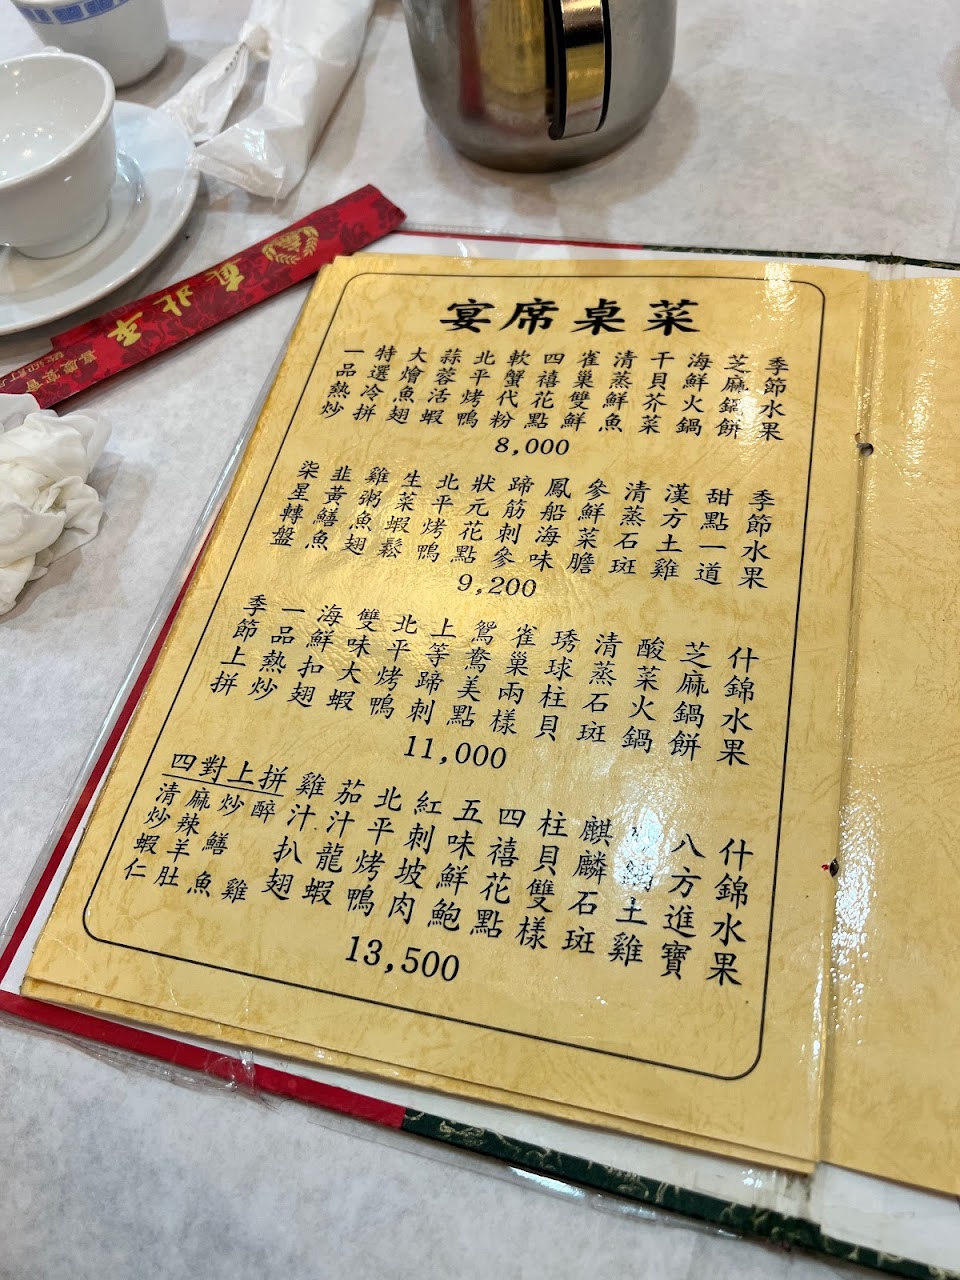 宴席桌菜
一品熱炒
特選冷拼
大燴魚翅
蒜蓉活蝦
北平烤鴨
軟蟹代粉
四禧花點
雀巢雙鮮
清蒸鮮魚
干貝芥菜
海鮮火鍋
芝麻鍋餅
季節水果
8,000
柒星轉盤
韭黃鱔魚
雞粥魚翅
生菜蝦鬆
北平烤鴨
狀元花點
蹄筋刺參
鳳船海味
參鮮菜膽
清蒸石斑
漢方土雞
甜點一道
季節水果
9,200
季節上拼
一品熱炒
海鮮扣翅
雙味大蝦
北平烤鴨
上等蹄刺
鴛鴦美點
雀巢兩樣
琇球柱貝
清蒸石斑
酸菜火鍋
芝麻鍋餅
什錦水果
11,000
四對上拼
清炒蝦仁
麻辣羊肚
炒鱔魚
醉雞
雞汁扒翅
茄汁龍蝦
北平烤鴨
紅刺坡肉
五味鮮鮑
四禧花點
柱貝雙樣
麒麟石斑
土雞
八方進寶
什錦水果
13,500
真北平